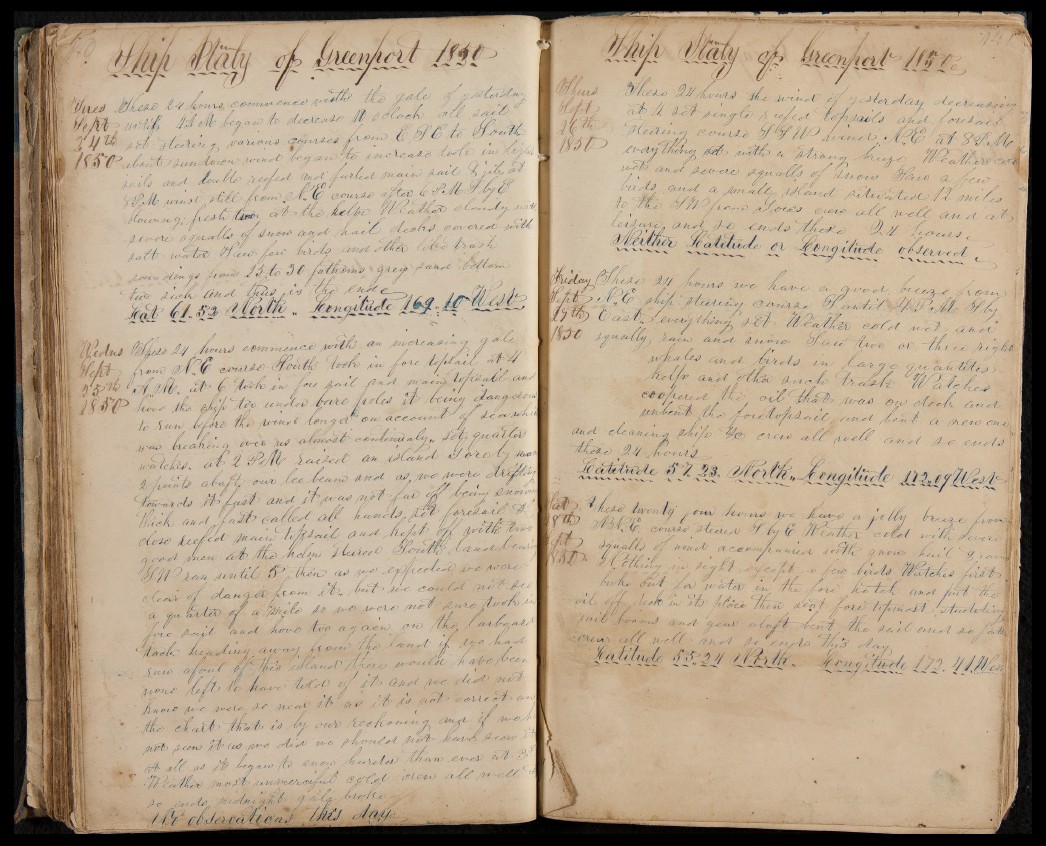 Ship Italy of Greenport 1850
Tues These 24 hours commence with the gale of yesterday
Sept until 4 A M began to decrease at oclock all sail
24th set steering various courses from E S E to South
1850 about sundown wind began to increase took in light
sails and double reefed and furled main sail & jib at
8 P.M wind still from N.E course after 6 P.M S by E
blowing fresh two at the helm Weather cloudy with
severe squalls of snow and hail decks covered with
salt water Saw few birds and other like trash
soundings from 25 to 30 fathoms grey sand bottom
two sick and thus is the end
Lat 61.52 North " Longitude 169.10 West
Wednes These 24 hours commence with an increasing gale
Sept from N.E course South took in fore topsail at 4
25th A.M. at 6 took in fore sail and main topsail and
1850 hove the ship too under bare poles it being dangerous
to run before the wind longer on account of sea which
was breaking over us almost continualy, set quarter
watches. at 2 P.M raised an island bore by
2 points abaft our lee beam and as we were drifting
towards it fast and it was not far off being snowing
thick and fast called all hands, set foresail &
close reefed main topsail and kept off with two
good men at the helm steered South land bearing
S W ran until 5 then as we expected we were
clear of danger from it, but we could not see
a quarter of a mile so we were not sure took in
fore sail and hove too again on the larboard
tack heading away from the land if we had
run afoul of this island there would have been
none left to have told of it and we did not
know we were so near it as it is not correct on
the chart that is by our reckoning and if we had
not seen it as we did we should not have seen it
at all as it began to snow harder than ever at 3
Weather most unmerciful cold crew all well
so ends midnight gale broke
No observations this day
Ship Italy of Greenport 1850
Thurs These 24 hours the wind of yesterday decreasing
Sept at 4 set single reefed topsails and foresail
26th steering course S S W wind N.E at 8 P.M
1850 everything set with a strong breeze Weather cold
wet and severe squalls of snow Saw a few
birds and a small island situated 12 miles
to the S W from crew all well and at
leisure and so ends these 24 hours
Neither Latitude or Longitude observed
Friday These 24 hours we have a good breeze from
Sept N.E ship steering course S until 4 P.M S by
27th East everything set Weather cold wet and
1850 squally, rain and snow Saw two or three right
whales and birds in large quantities
kelp and other such trash Watches
coopered the oil that was on deck and
unbent the foretopsail and bent a new one
and cleaning ship &c crew all well and so ends
these 24 hours
Latitude 57.23 North " Longitude 172.09 West
Sat these twenty four hours we have a jelly breeze from
28th N.N.E course steered S by E Weather cold with severe
Sept squalls of wind accompanied with snow hail & rain
1850 Nothing in sight except a few birds Watches first
broke out for water in the fore hatch and put the
oil off deck in its place then sent fore topmost studding
sail booms and gear aloft bent the sail and so forth
crew all well and so ends this day
Latitude 55.24 North " Longitude 172.41 West